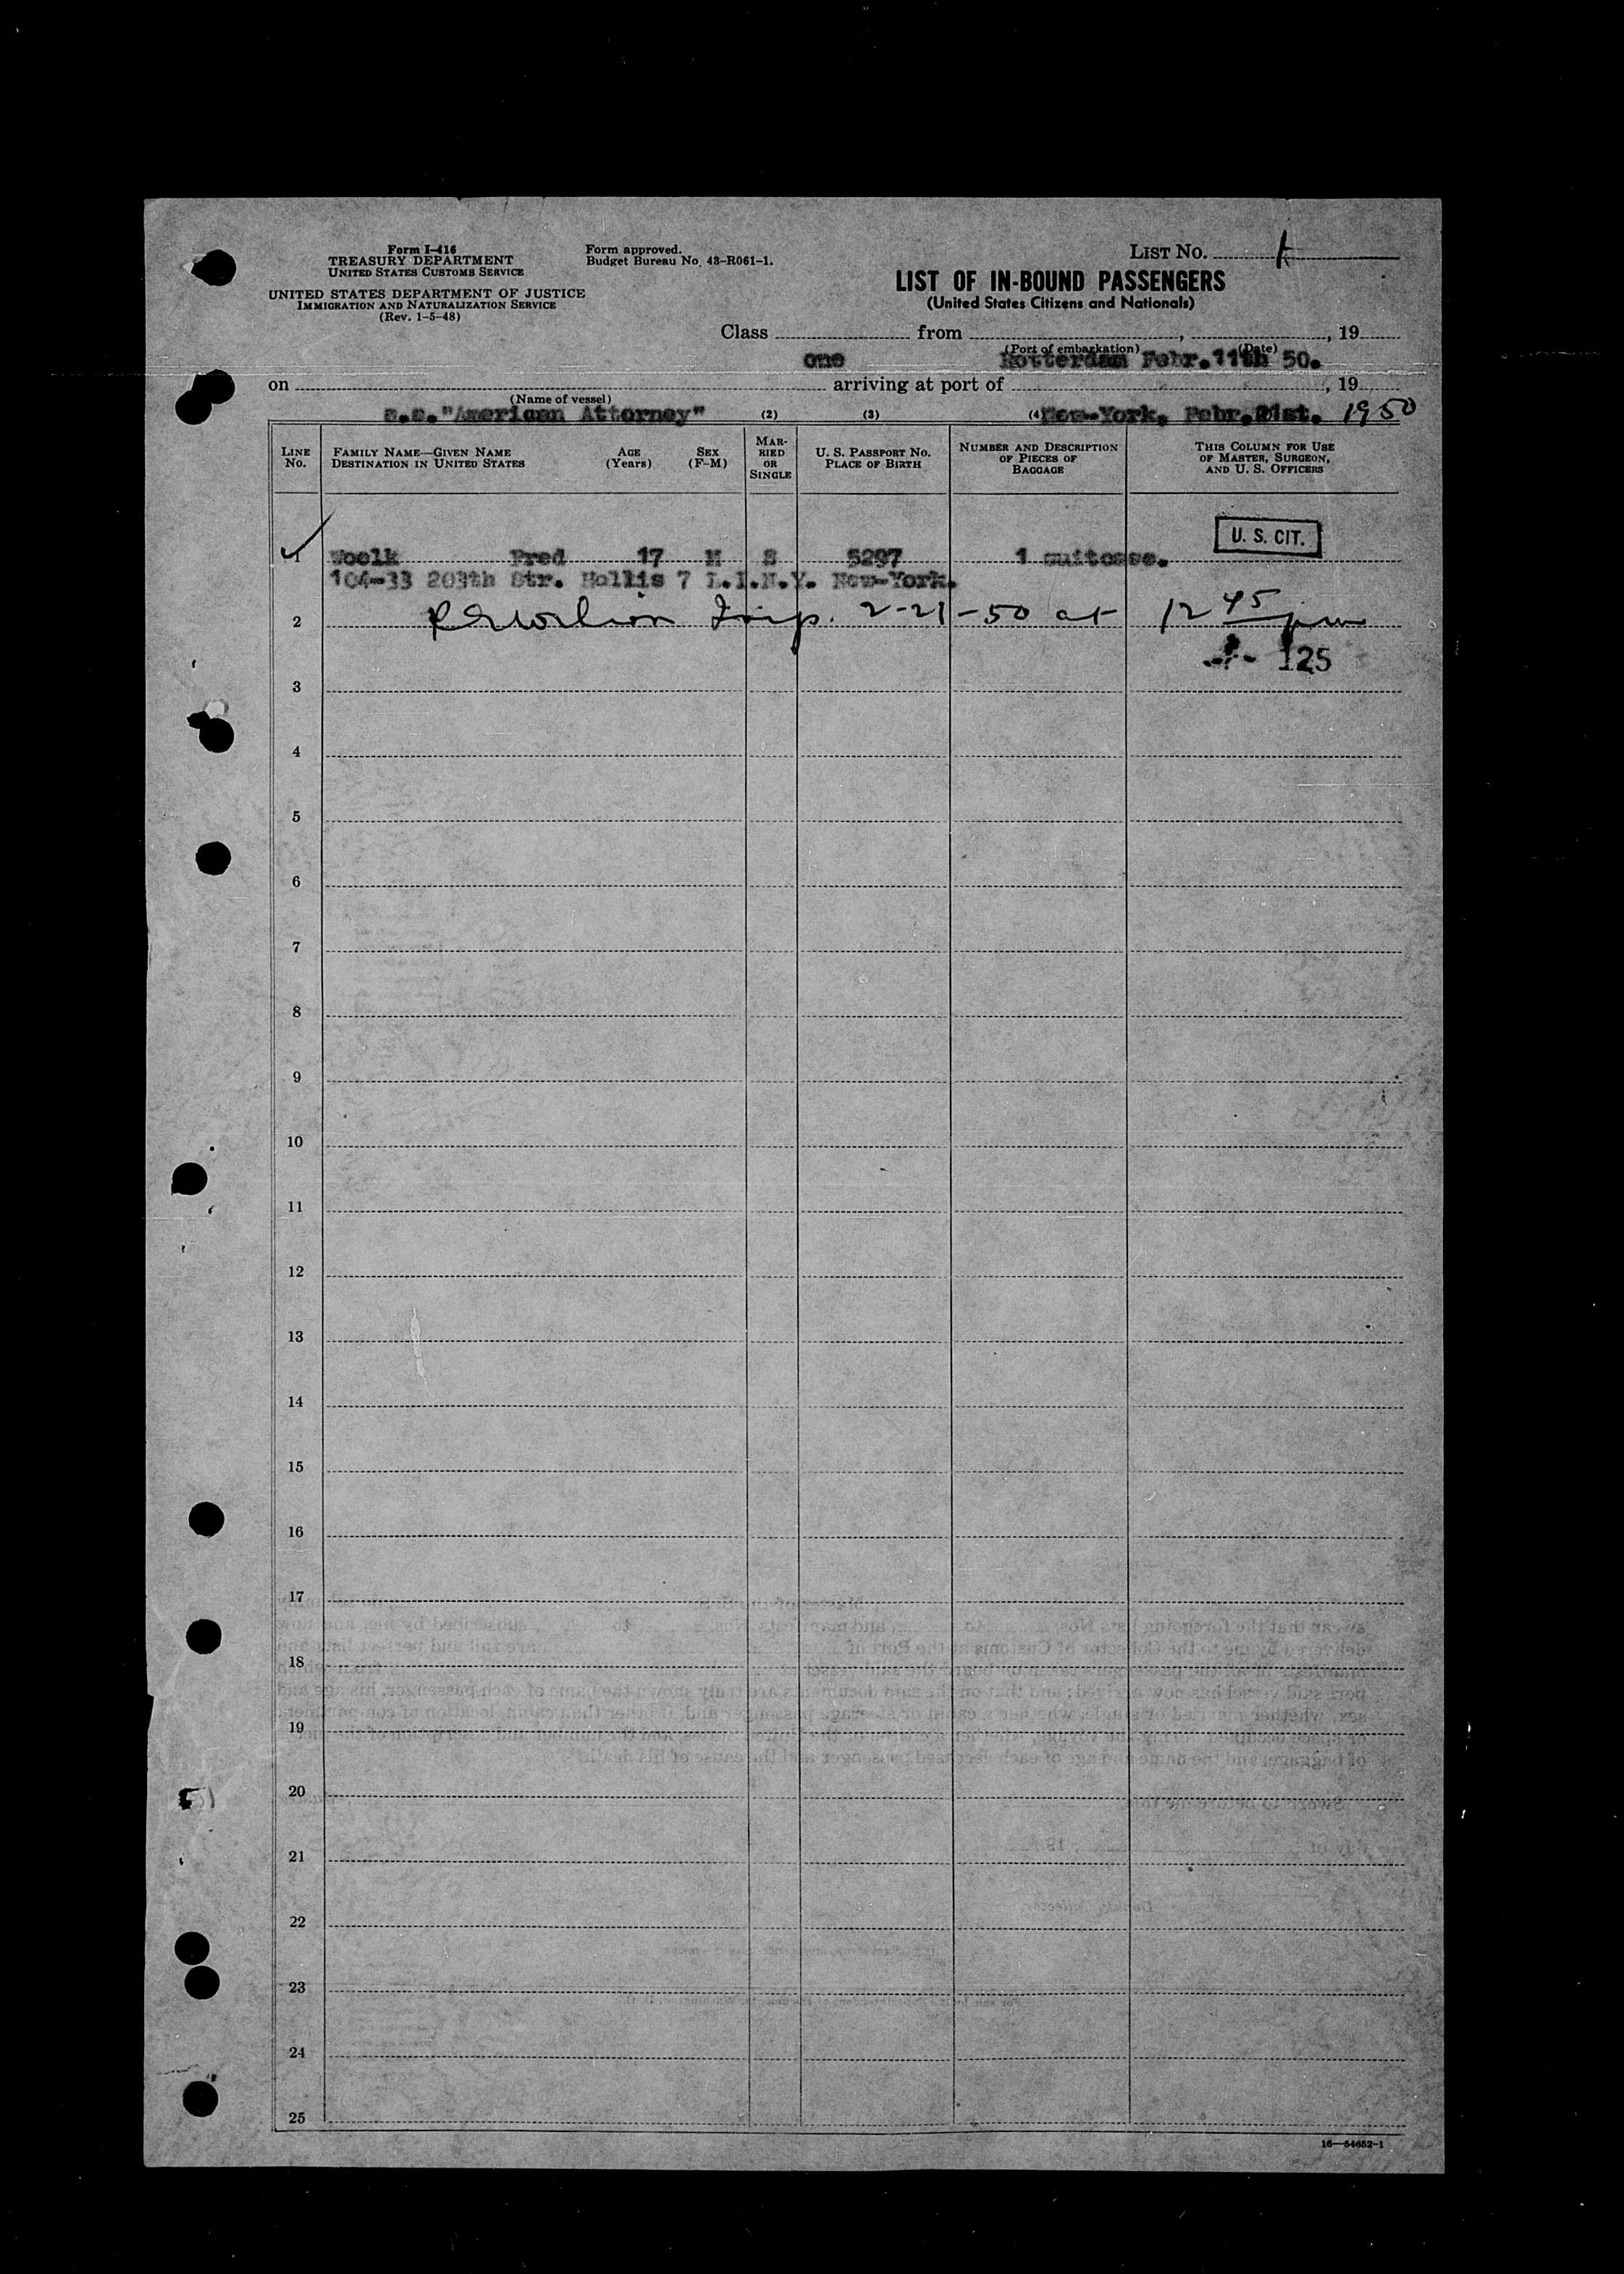 Form I-416
TREASURY DEPARTMENT
UNITED STATES CUSTOMS SERVICE
UNITED STATES DEPARTMENT OF JUSTICE
IMMIGRATION AND NATURALIZATION SERVICE
(Rev. 1-5-48)
Form approved.
Budget Bureau No. 43-R061-1.
LIST NO. 1
LIST OF IN-BOUND PASSENGERS
(United States Citizens and Nationals)
Class from , , 19
(Port of embarkation) (Date)
one Rotterdam Febr.11th 50.
on arriving at port of , 19
(Name of vessel)
s.s."American Attorney" (2) (3) (4) New-York, Febr.21st. 1950
LINE NO.
FAMILY NAME—GIVEN NAME
DESTINATION IN UNITED STATES
AGE (Years)
SEX (F-M)
MARRIED OR SINGLE
U. S. PASSPORT NO.
PLACE OF BIRTH
NUMBER AND DESCRIPTION OF PIECES OF BAGGAGE
THIS COLUMN FOR USE OF MASTER, SURGEON, AND U. S. OFFICERS
U. S. CIT.
1 Woelk Fred 17 M S 5297 1 suitcase.
104-33 203th Str. Hollis 7 L.I.N.Y. New-York.
2 Insp. 2-21-50 at 12 45 pm
125
3
4
5
6
7
8
9
10
11
12
13
14
15
16
17
18
19
20
21
22
23
24
25
16—54652-1